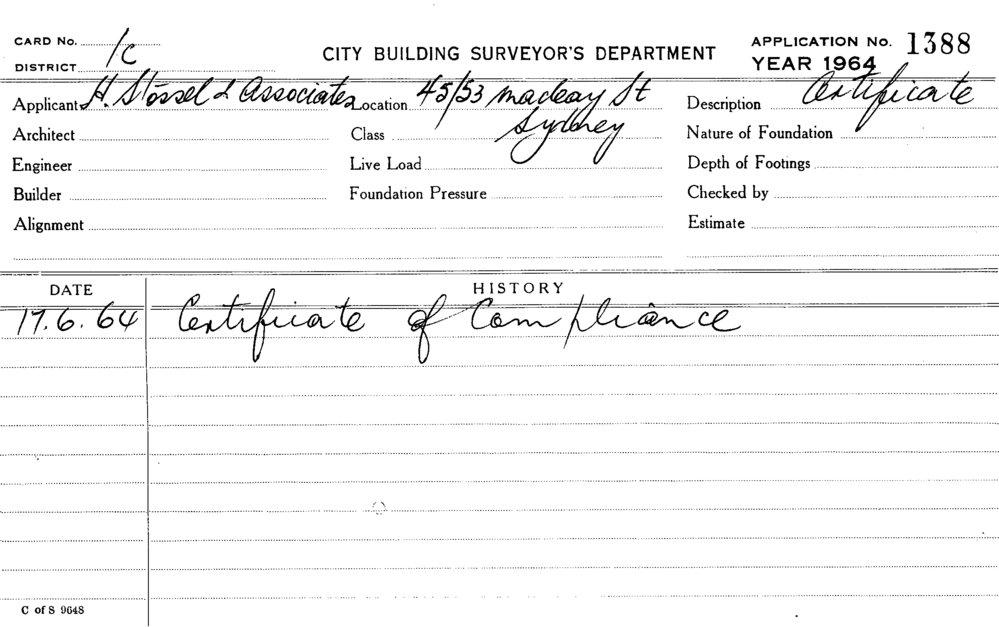 CARD No. 1c
DISTRICT
CITY BUILDING SURVEYOR'S DEPARTMENT
APPLICATION No. 1388
YEAR 1964
Applicant H. Stossel & Associates Location 45/53 Macleay St Description Certificate
Architect Class Sydney Nature of Foundation
Engineer Live Load Depth of Footings
Builder Foundation Pressure Checked by
Alignment Estimate
DATE HISTORY
17.6.64 Certificate of Compliance
C of S 9648